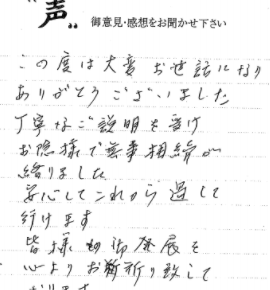 "声"
御意見・感想をお聞かせ下さい
この度は大変お世話になり
ありがとうございました
丁寧なご説明を受け
お陰様で無事相続が
終りました
安心してこれから過して
行けます
皆様の御発展を
心よりお祈り致して
おります